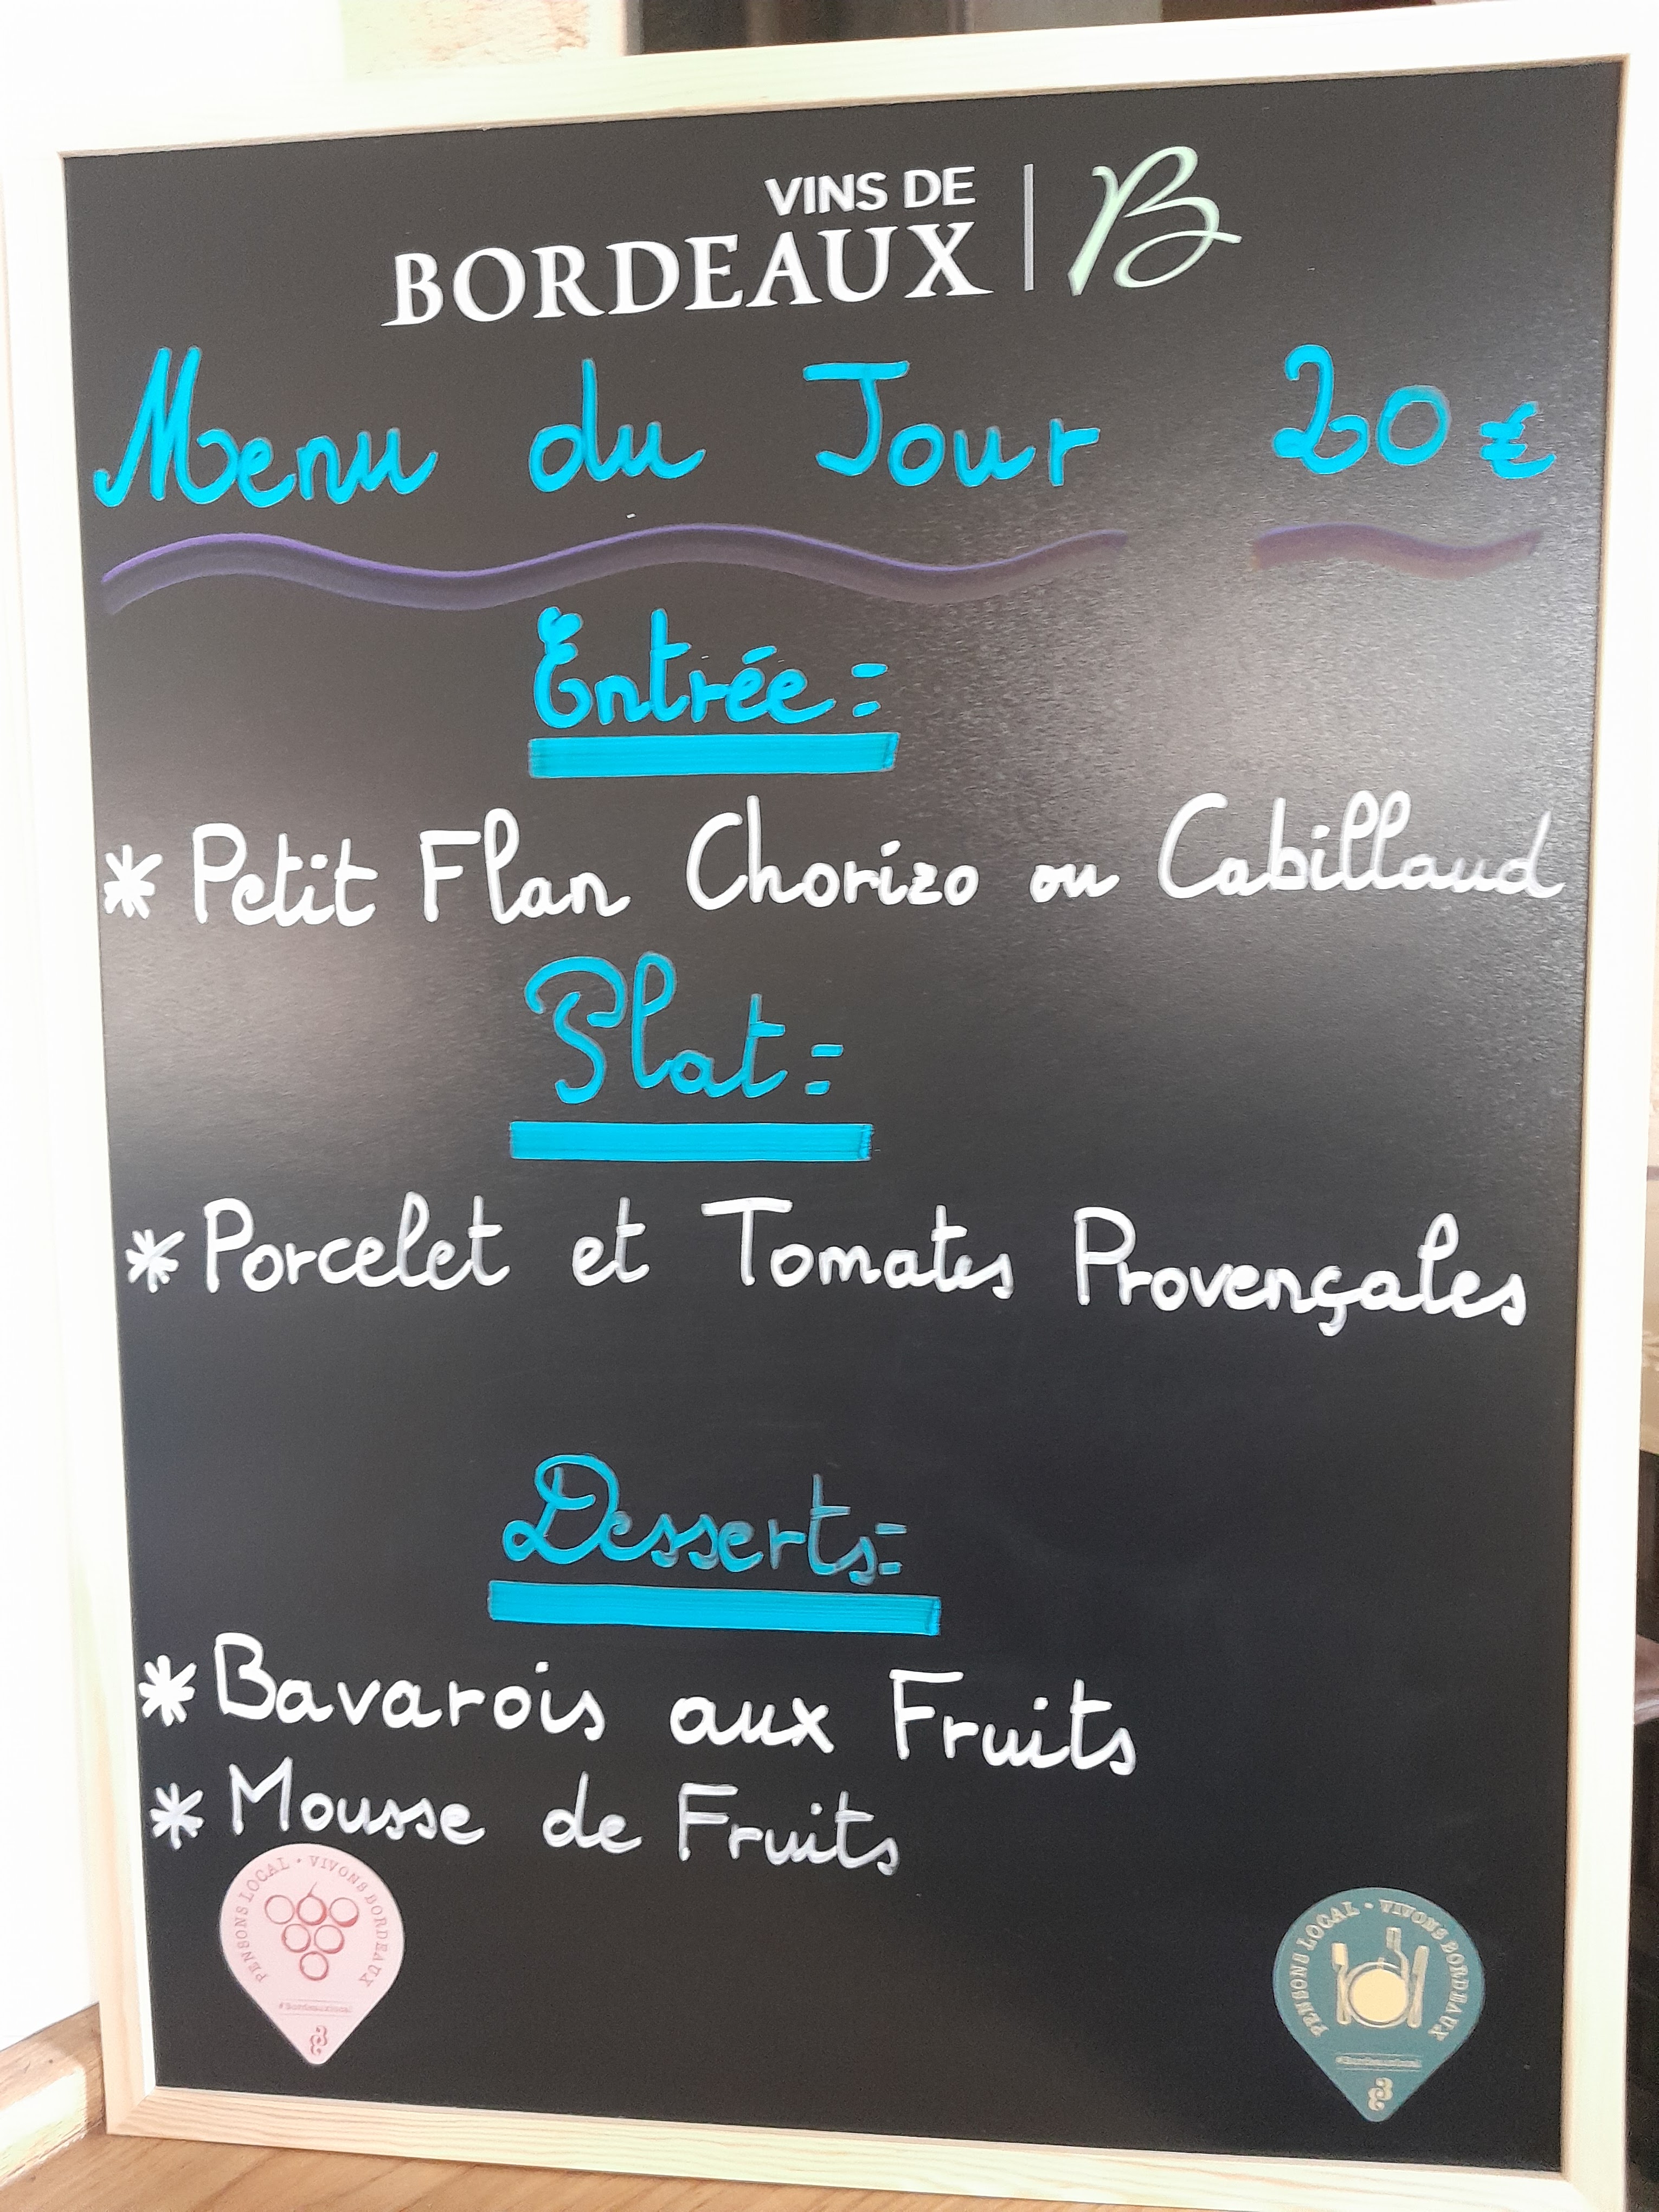 VINS DE
BORDEAUX B
Menu du Jour 20 €
Entrée :
* Petit Flan Chorizo ou Cabillaud
Plat :
* Porcelet et Tomates Provençales
Desserts :
* Bavarois aux Fruits
* Mousse de Fruits
PENSONS LOCAL • VIVONS BORDEAUX
#Bordeauxlocal
PENSONS LOCAL • VIVONS BORDEAUX
#Bordeauxlocal